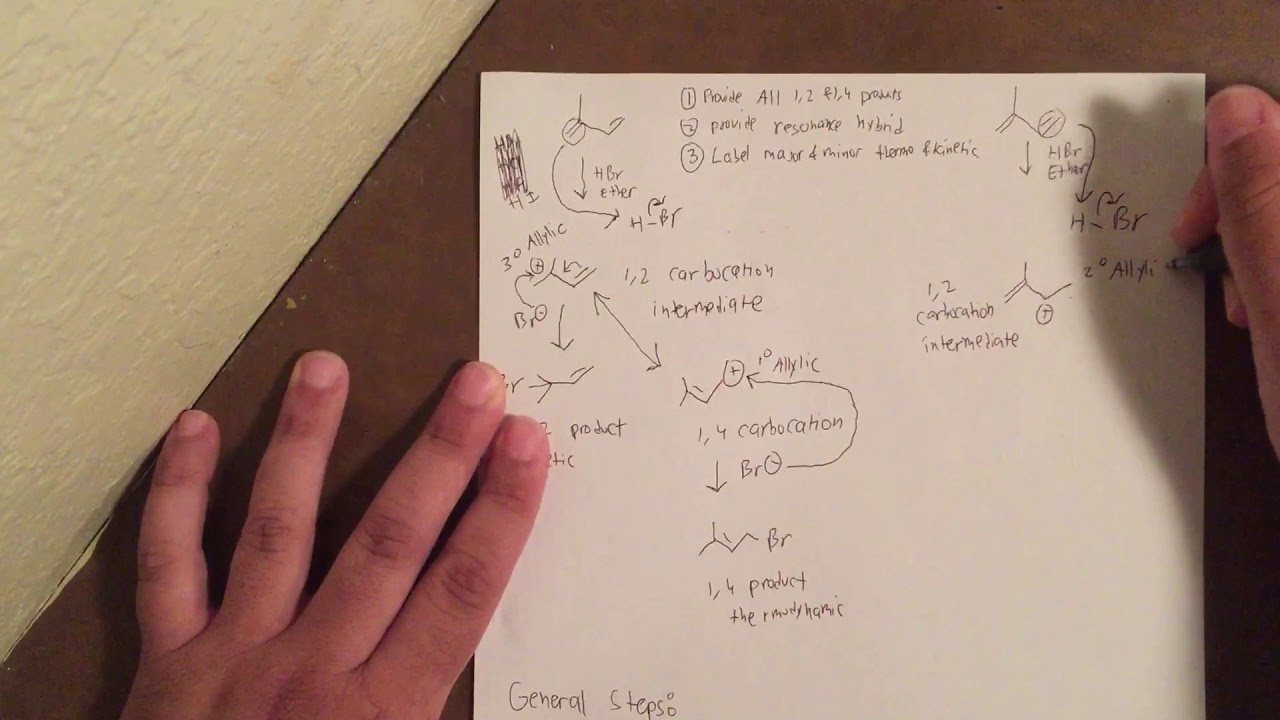 ① Provide All 1,2 & 1,4 products
② provide resonance hybrid
③ Label major & minor thermo & kinetic
HBr
Ether
H-Br
HI
3° Allylic
⊕
Br⊖
1,2 carbocation
intermediate
Br
product
etic
⊕ 1° Allylic
1,4 carbocation
Br⊖
Br
1,4 product
thermodynamic
HBr
Ether
H-Br
1,2
carbocation
intermediate
2° Allyli
⊕
General Steps: